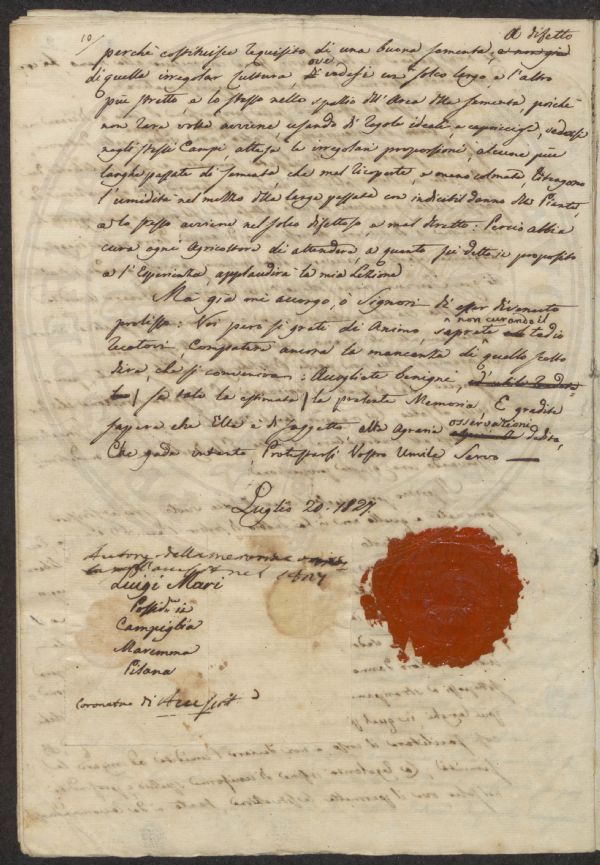 10/
A difetto
perchè costituisce requisito di una buona sementa, e non già
di quella irregolar Cultura, ove si vedesse un solco largo, e l'altro
più stretto, e lo stesso nello spallo dell'Area della sementa, poichè
non rare volte avviene usando di regole ideali, e capricciose, vedersi
negli stessi Campi attesa la irregolari proporzioni, alcune più
larghe passate di sementa, che mal ricoperte, e meno colmate, ritengono
l'umidità nel mezzo della larga passata con indicibil danno delle Piante,
e lo stesso avviene nel solco difettoso e mal diretto: Perciò abbia
cura ogni Agricoltore di attendere, a quanto fu detto in proposito
e l'Esperienza, applaudirà la mia Lezione
Ma già mi accorgo, o Signori di esser divenuto
prolisso: Voi però sì grati di Animo, saprete non curando il tedio
recatovi, Compatire ancora la mancanza di quello
dire, che si conveniva: Accogliete benigni,
se tale la estimate, la presente Memoria, E gradite
sapere che Ella è di soggetto, alle Agrarie osservazioni dedito,
Che gode intanto, Protestarsi Vostro Umile Servo
Luglio 20. 1827.
Autore della memoria
Luigi Mari
Possid. in
Campiglia
Maremma
Pisana
Coronatea di Accessit